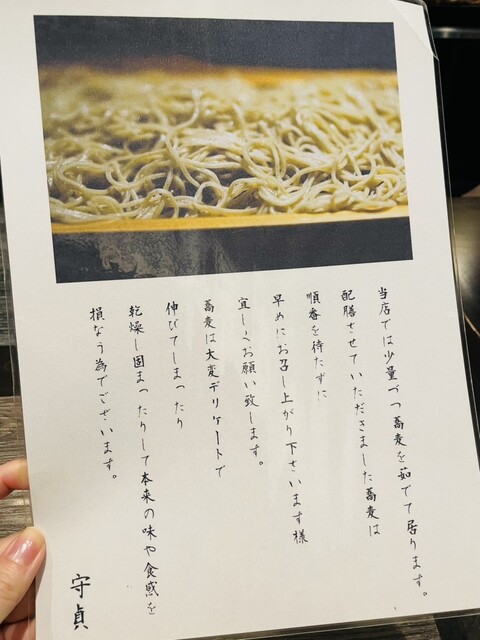 当店では少量づつ蕎麦を茹でて居ります。
配膳させていただきました蕎麦は
順番を待たずに
早めにお召し上がり下さいます様
宜しくお願い致します。
蕎麦は大変デリケートで
伸びてしまったり
乾燥し固まったりして本来の味や食感を
損なう為でございます。
守貞